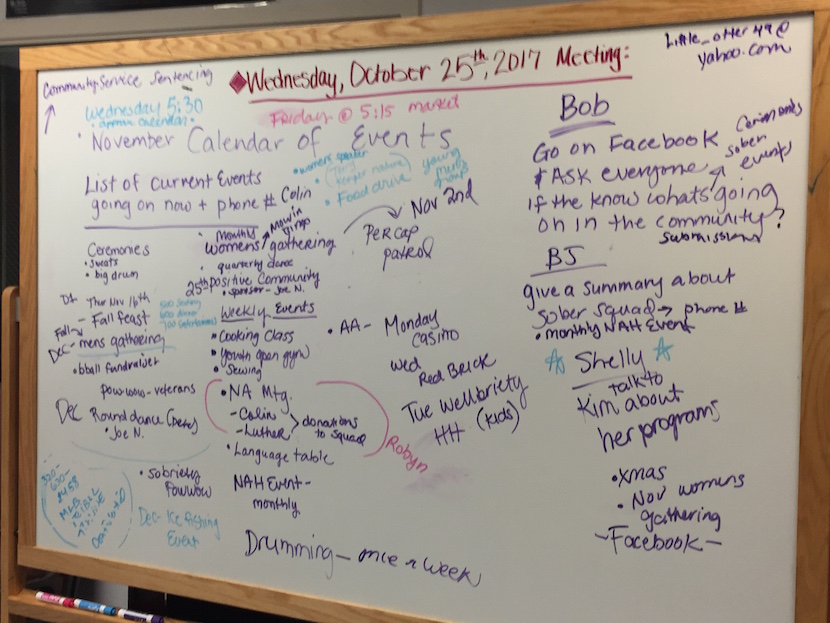 Community Service Sentencing
◆Wednesday, October 25th, 2017 Meeting:
Little_otter49@
yahoo.com
Wednesday 5:30
Friday @ 5:15 market
• November Calendar of Events
List of current Events
going on now + phone # Colin
• womens speaker
• Food drive
young
mens
group
Ceremonies
• sweats
• big drum
• monthly
womens gathering
Mowin
gingo
• quarterly dance
25th positive Community
• sponsor - Joe N.
Per Cap
patrol
Nov 2nd
Thur Nov 16th
- Fall feast
500 seating
600 dinner
700 entertainment
Dec - mens gathering
• bball fundraiser
Pow-wow - veterans
Dec Round dance (Pete)
• Joe N.
• Sobriety
Powwow
Dec - Ice fishing
Event
Weekly Events
• Cooking Class
• Youth open gym
• Sewing
• NA Mtg.
- Colin
- Luther
donations
to squad
Robyn
• Language table
NAH Event -
monthly
Drumming - once a week
• AA - Monday
casino
Wed
Red Brick
Tue Wellbriety
HH (kids)
Bob
Go on Facebook
& Ask everyone
if the know whats going
on in the community?
Submissions
Ceremonies
sober
events
BJ
give a summary about
Sober Squad → phone #
• monthly NAH Event
☆ Shelly ☆
talk to
Kim about
her programs
• Xmas
• Nov womens
gathering
- Facebook -